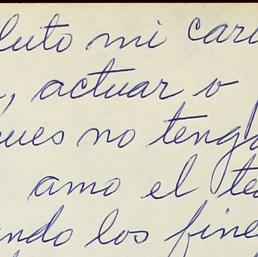 luto mi cari
, actuar o
ues no tenga
amo el te
ndo los fine